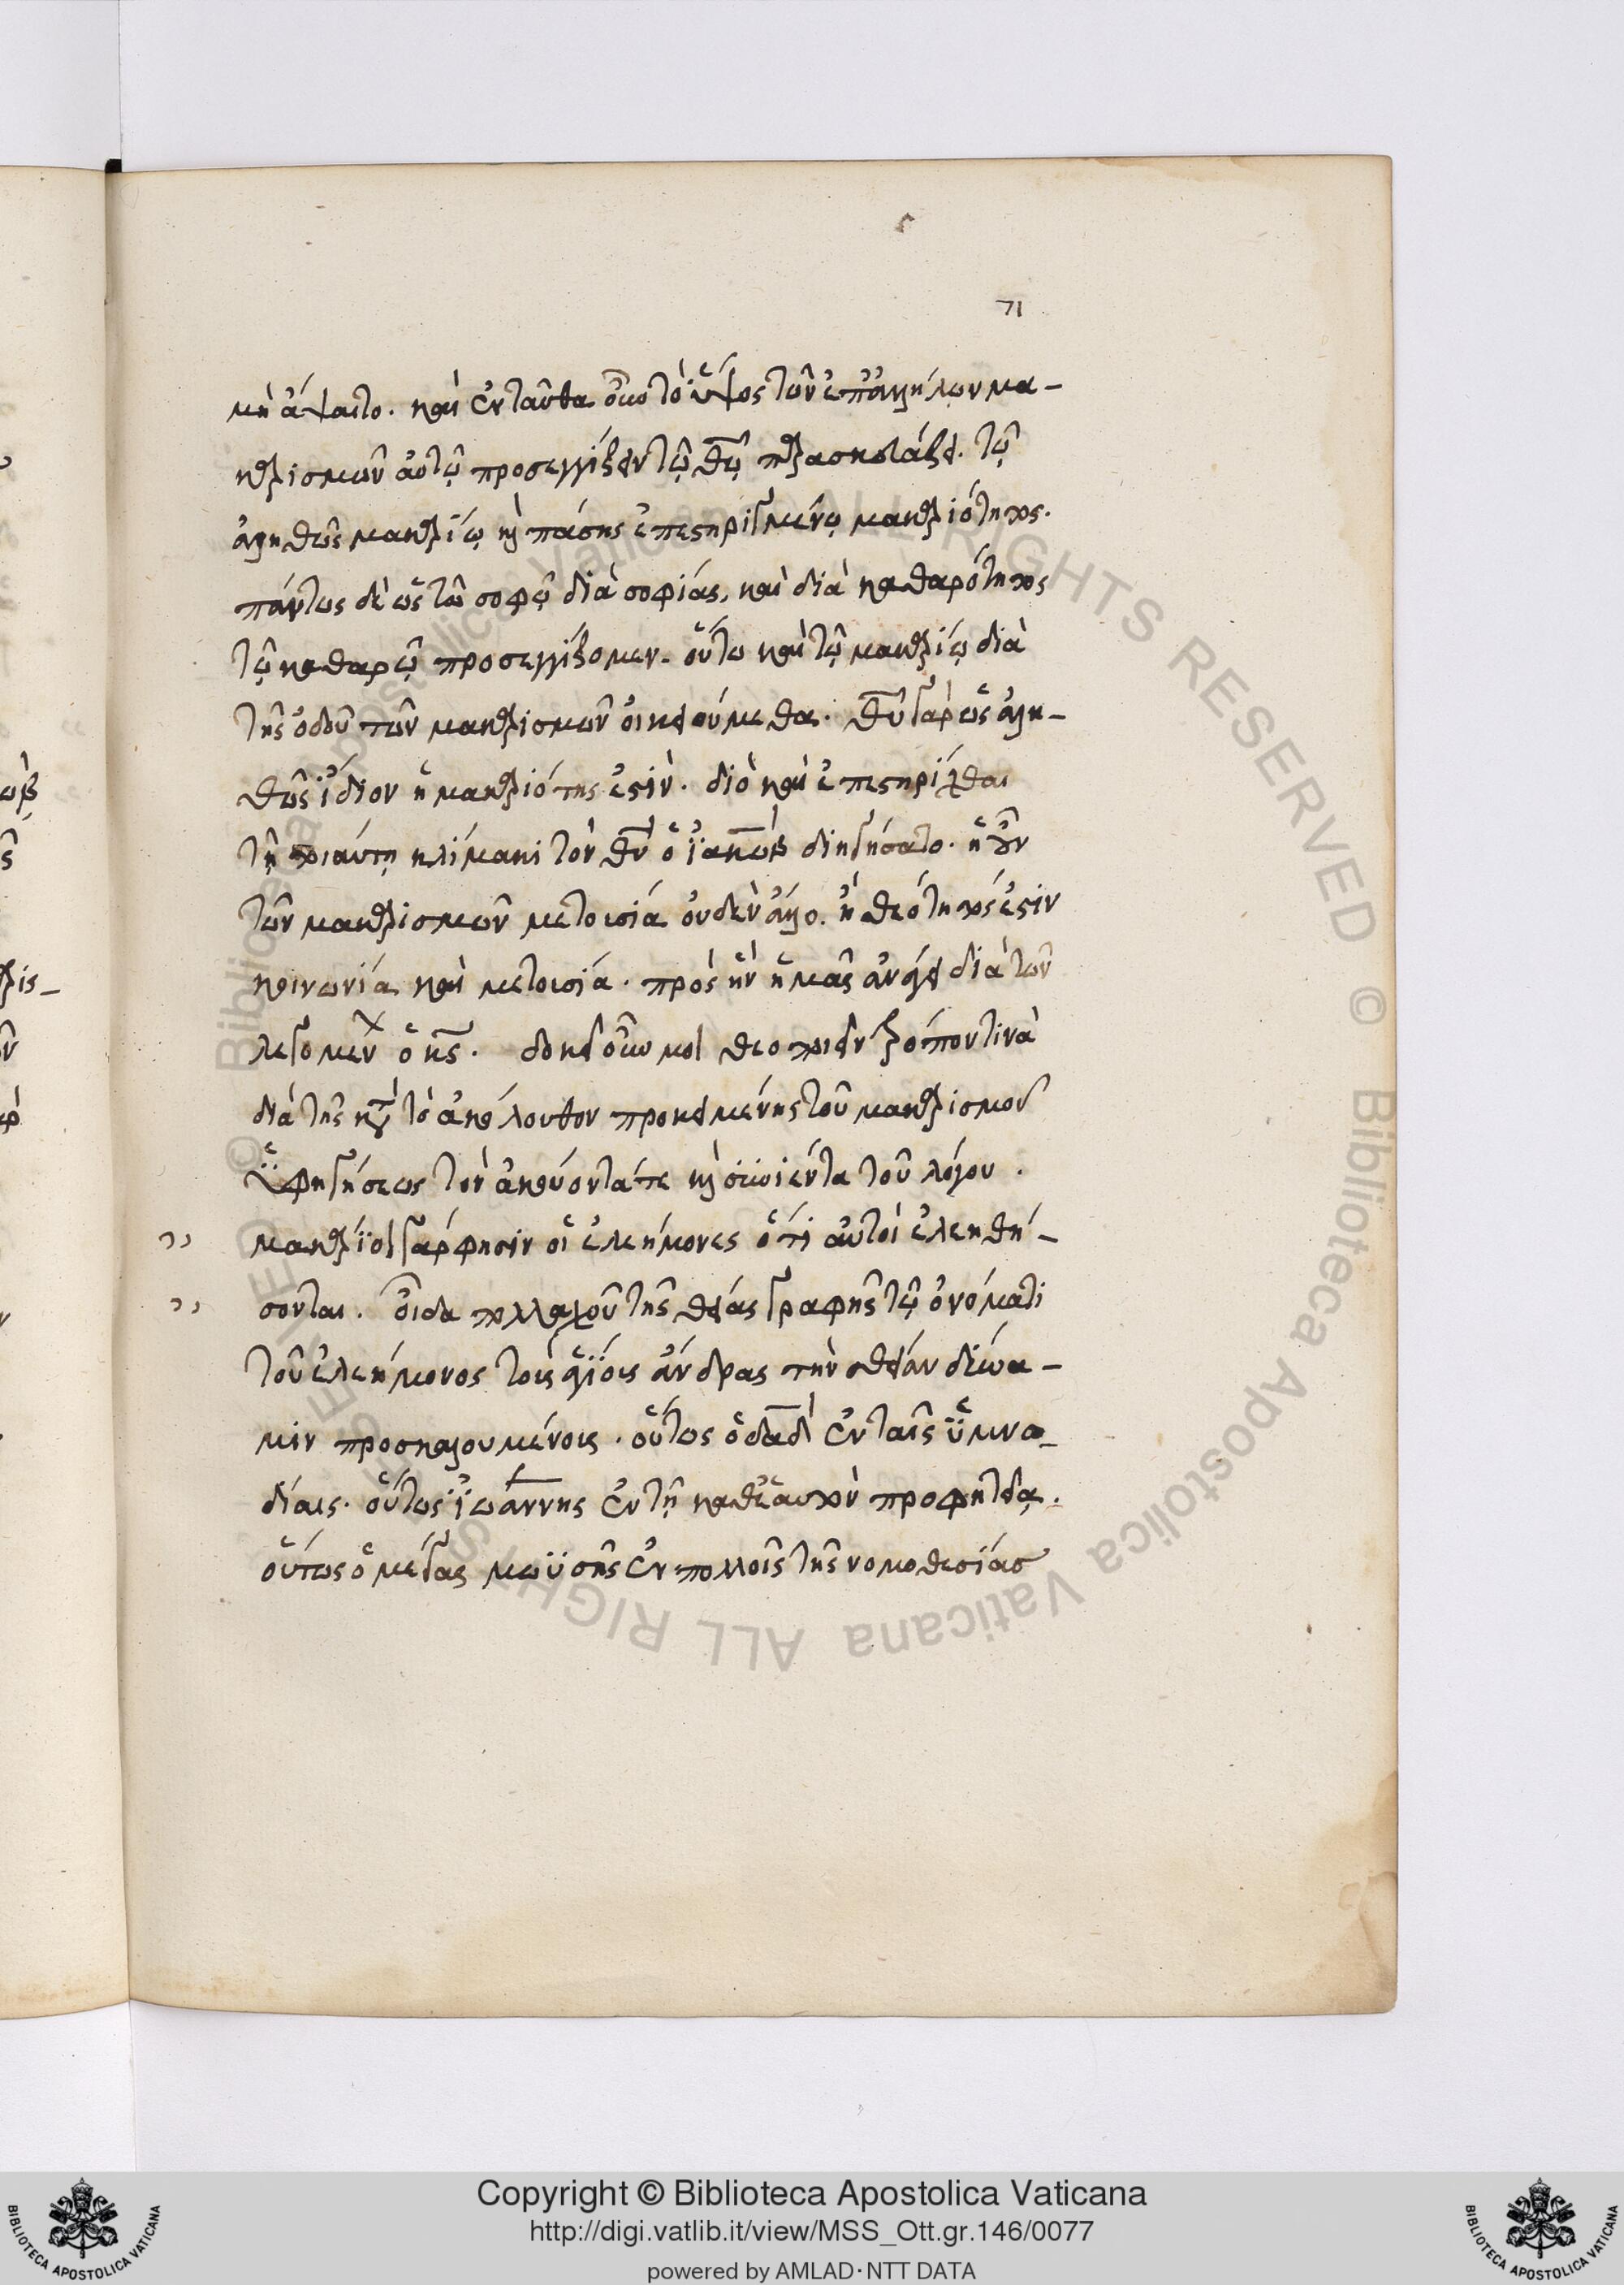 71
μὴ ἅψαιτο. καὶ ἐνταῦθα οὖν τὸ ὕψος τῶν ἐπαλλήλων μα-
καρισμῶν αὐτῷ προσεγγίζειν τῷ θῷ παρασκευάζει. τῷ
ἀληθῶς μακαρίῳ κ πάσης ἐπεστηριγμένῳ μακαριότητος.
πάντως δὲ ὡς τῶ σοφῷ διὰ σοφίας, καὶ διὰ καθαρότητος
τῷ καθαρῷ προσεγγίζομεν. οὕτω καὶ τῷ μακαρίῳ διὰ
τῆς ὁδοῦ τῶν μακαρισμῶν οἰκειούμεθα. θῦ γὰρ ὡς ἀλη-
θῶς ἴδιον ἡ μακαριότης ἐστὶν. διὸ καὶ ἐπεστηρίχθαι
τῇ τοιαύτῃ κλίμακι τὸν θν ὁ ἰακὼβ διηγήσατο. ἡ οὖν
τῶν μακαρισμῶν μετουσία οὐδὲν ἄλλο. ἢ θεότητός ἐστιν
κοινωνία καὶ μετουσία. πρὸς ἣν ἡμᾶς ἀνάγει διὰ τῶν
λεγομένων ὁ κς. δοκεῖ οὖν μοι θεοποιεῖν τρόπον τινὰ
διὰ τῆς κατὰ τὸ ἀκόλουθον προκειμένης τοῦ μακαρισμοῦ
ὑφηγήσεως τὸν ἀκούοντά τε κ συνιέντα τοῦ λόγου.
μακάριοι γάρ φησιν οἱ ἐλεήμονες ὅτι αὐτοὶ ἐλεηθή-
σονται. οἶδα πολλαχοῦ τῆς θείας γραφῆς τῷ ὀνόματι
τοῦ ἐλεήμονος τοὺς ἁγίους ἄνδρας τὴν θείαν δύνα-
μιν προσκαλουμένους. οὕτως ὁ δαδ ἐν ταῖς ὑμνω-
δίαις. οὕτως ἰωάννης ἐν τῇ καθ' ἑαυτὸν προφητείᾳ.
οὕτως ὁ μέγας μωϋσῆς ἐν πολλοῖς τῆς νομοθεσίας
Copyright © Biblioteca Apostolica Vaticana
http://digi.vatlib.it/view/MSS_Ott.gr.146/0077
powered by AMLAD·NTT DATA